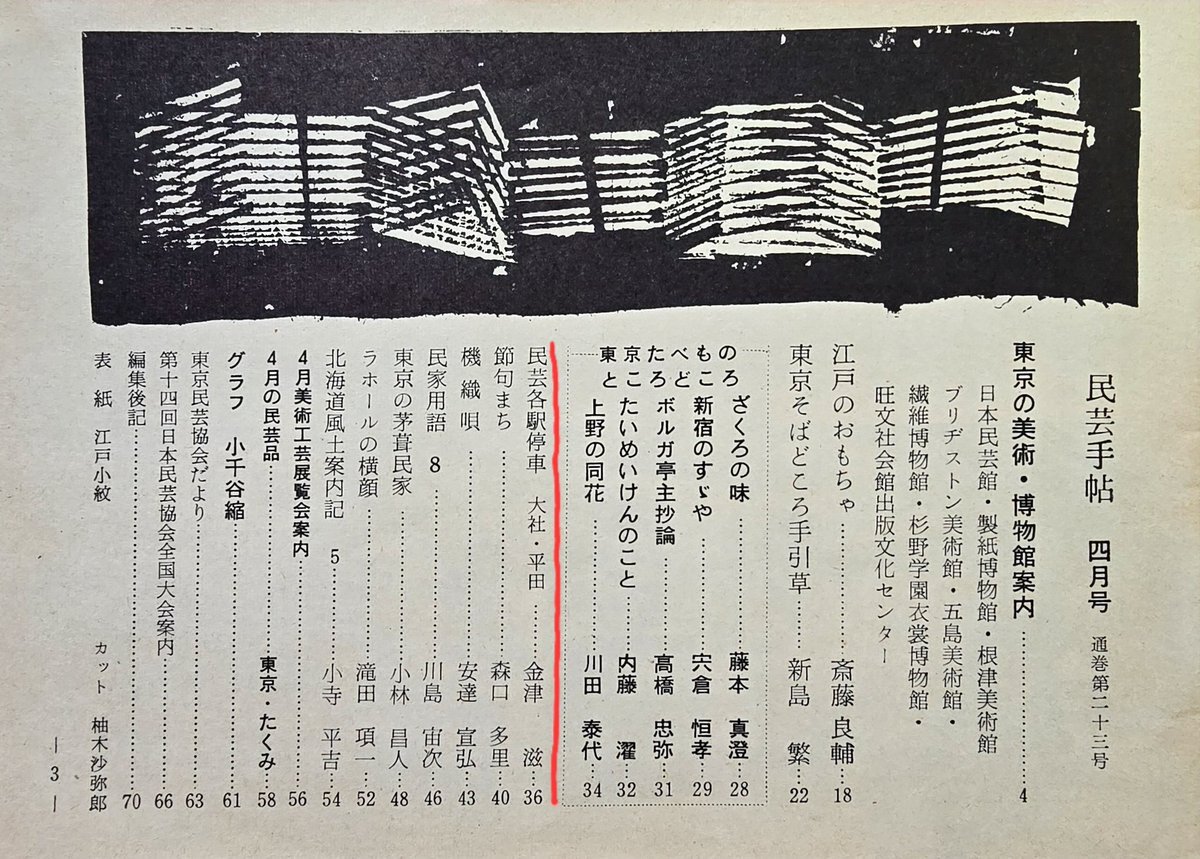 民芸手帖　四月号　通巻第二十三号
東京の美術・博物館案内……………4
日本民芸館・製紙博物館・根津美術館
ブリヂストン美術館・五島美術館・
繊維博物館・杉野学園衣裳博物館・
旺文社会館出版文化センター
江戸のおもちゃ……………斎藤良輔 18
東京そばどころ手引草……………新島　繁 22
東京たべもの
ところどころ
ざくろの味……………藤本　真澄 28
新宿のすゞや……………宍倉　恒孝 29
ボルガ亭主抄論……………高橋　忠弥 31
たいめいけんのこと……………内藤　濯 32
上野の同花……………川田　泰代 34
民芸各駅停車　大社・平田……………金津　滋 36
節句まち……………森口　多里 40
機織唄……………安達　宣弘 43
民家用語　8……………川島　宙次 46
東京の茅葺民家……………小林　昌人 48
ラホールの横顔……………滝田　項一 52
北海道風土案内記　5……………小寺　平吉 54
4月美術工芸展覧会案内……………56
4月の民芸品……………東京・たくみ…58
グラフ　小千谷縮……………61
東京民芸協会だより……………63
第十四回日本民芸協会全国大会案内……………66
編集後記……………70
表　紙　江戸小紋　カット　柚木沙弥郎
―3―